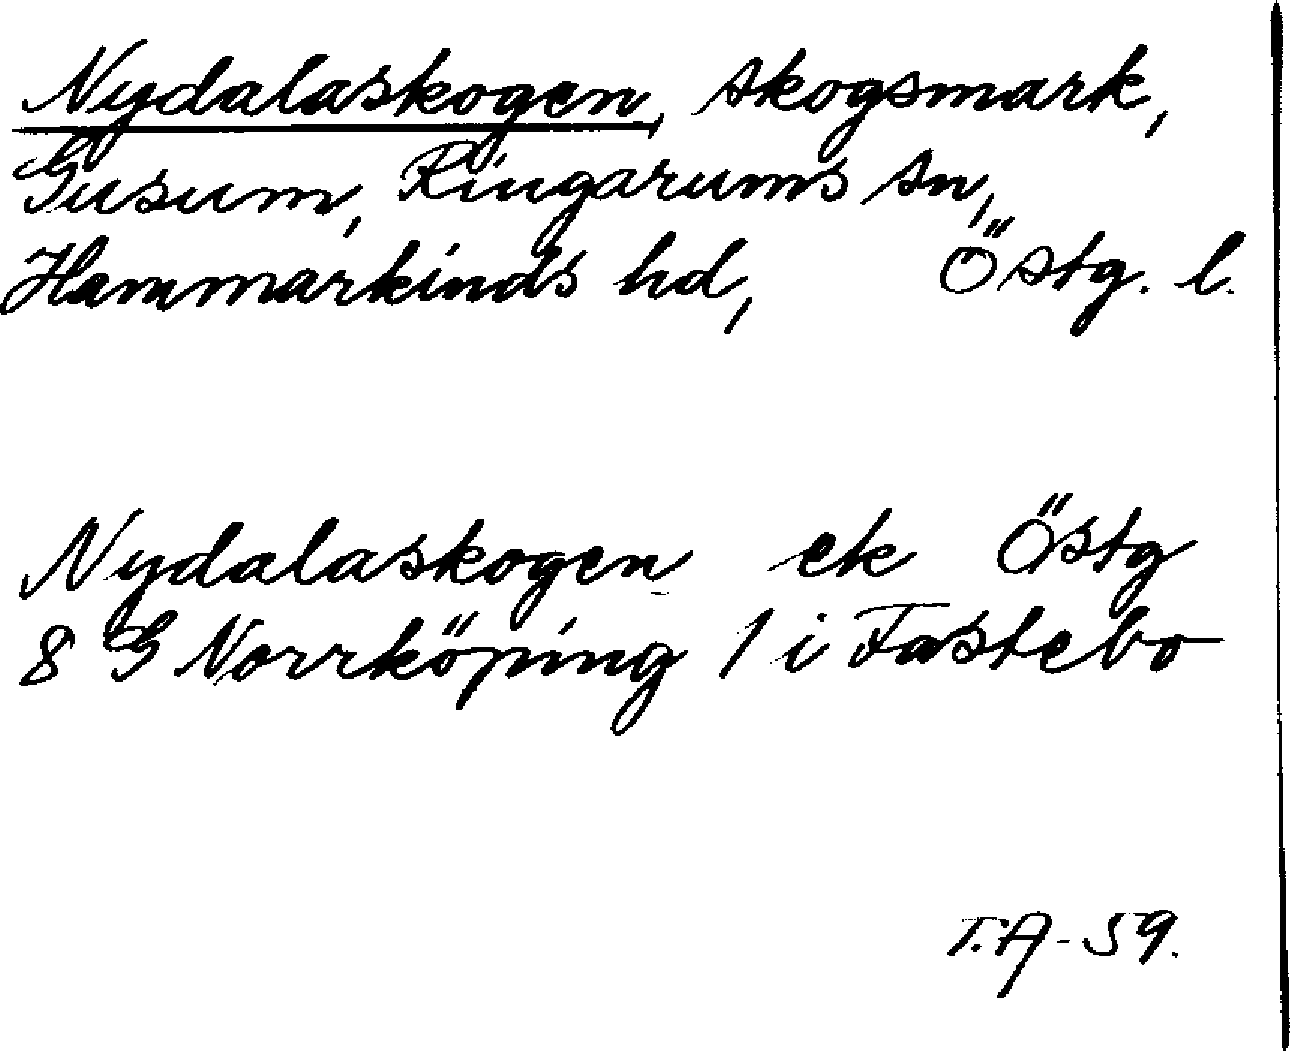 Nydalaskogen, skogsmark,
Gusum, Ringarums sn,
Hammarkinds hd, Östg. l.
Nydalaskogen ek Östg
8 G Norrköping 1 i Fastebo
T.A-59.